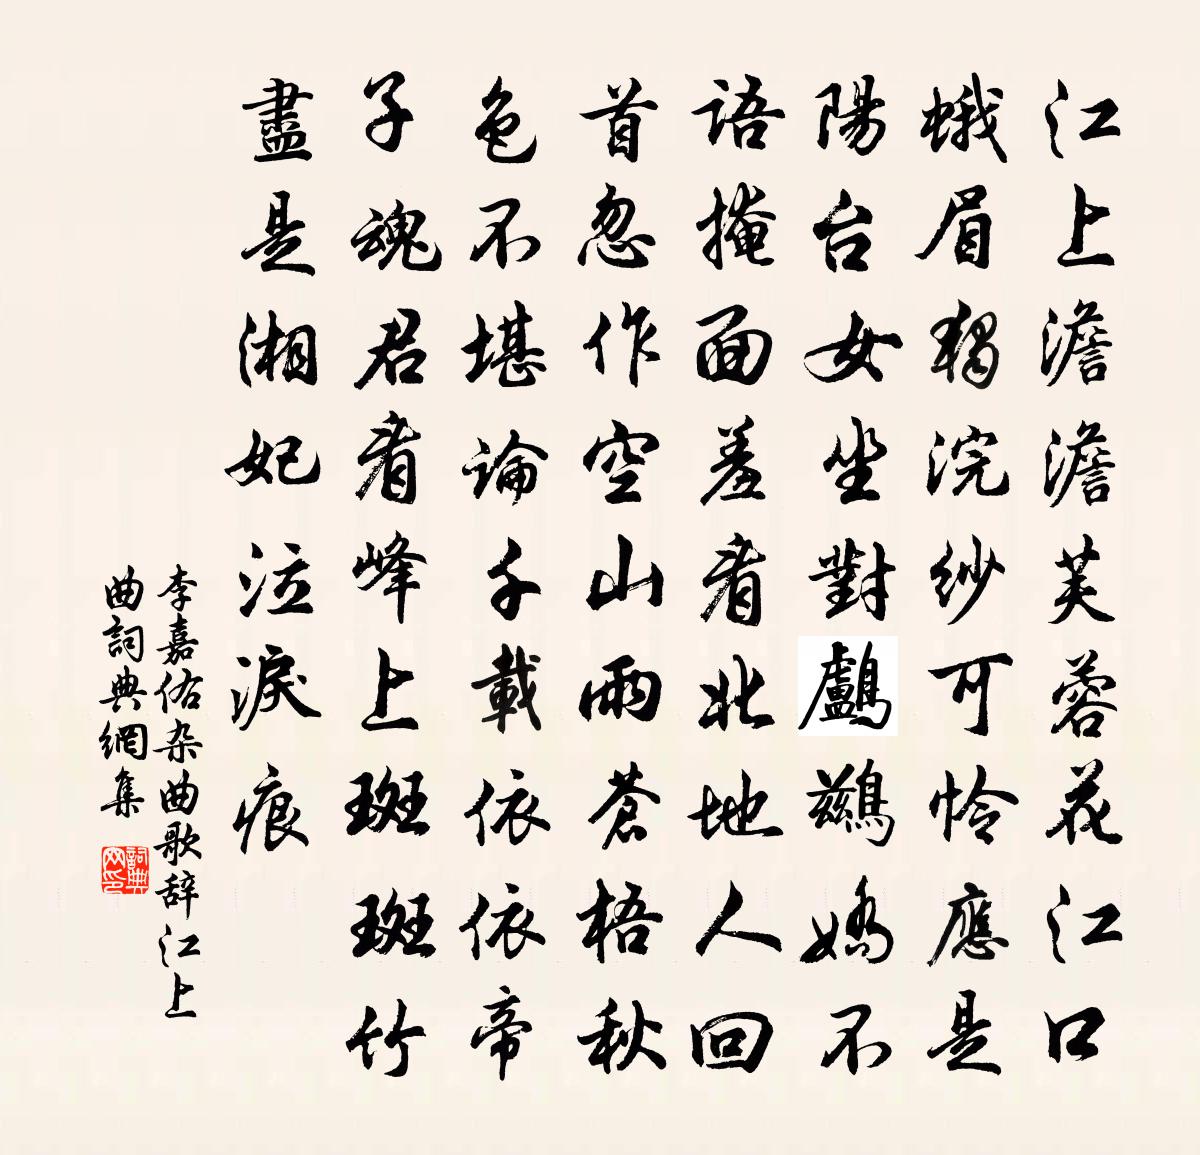 江上澹澹芙蓉花江口
蛾眉獨浣紗可怜應是
陽台女坐對鸕鶿嬌不
語掩面羞看北地人回
首忽作空山雨蒼梧秋
色不堪論千載依依帝
子魂君看峰上斑斑竹
盡是湘妃泣淚痕
李嘉佑杂曲歌辞江上
曲詞典網集
詞典網印